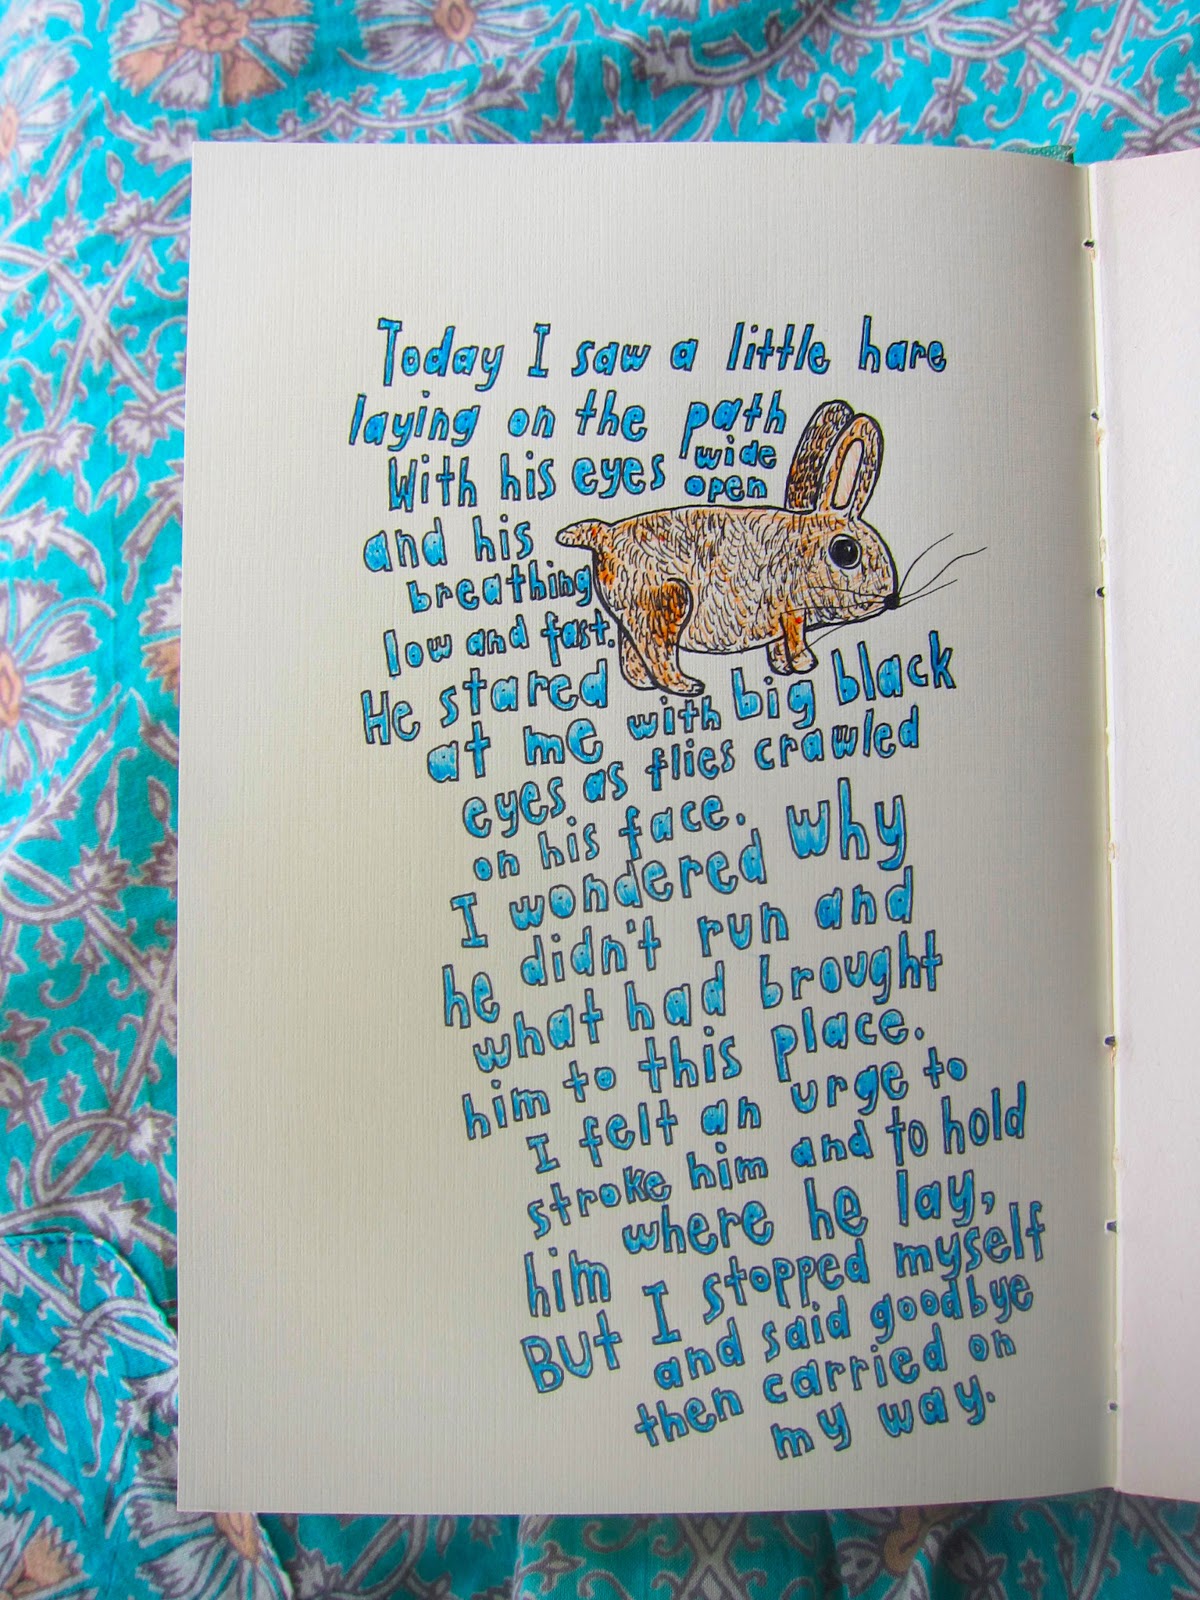 Today I saw a little hare
laying on the path
With his eyes wide
open
and his
breathing
low and fast.
He stared
at me with big black
eyes as flies crawled
on his face.
I wondered why
he didn't run and
what had brought
him to this place.
I felt an urge to
stroke him and to hold
him where he lay,
But I stopped myself
and said goodbye
then carried on
my way.